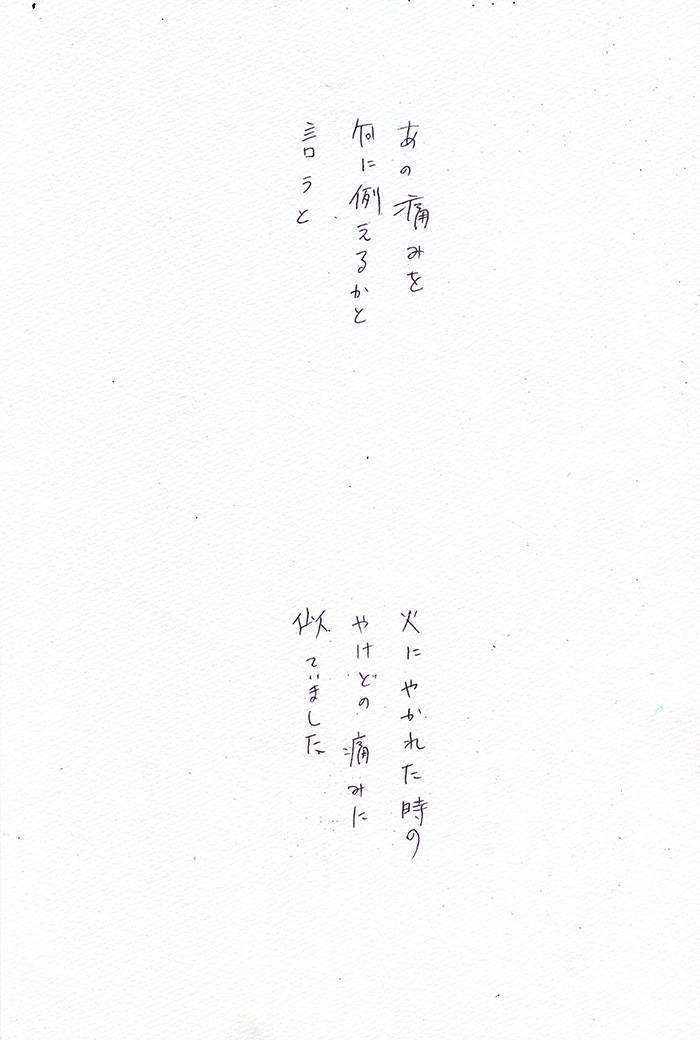 あの痛みを
何に例えるかと
言うと
火にやかれた時の
やけどの痛みに
似ていました